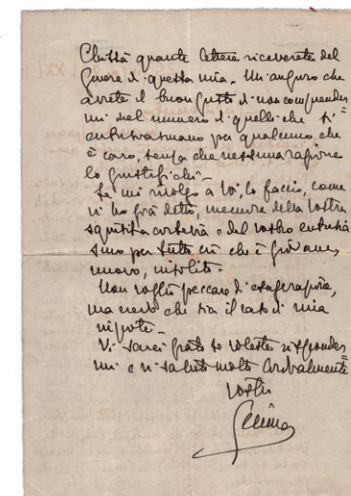 Chissà quante lettere riceverete del
genere di questa mia. Mi auguro che
avrete il buon gusto di non comprender=
mi nel numero di quelli che s'
entusiasmano per qualcuno che
è caro, senza che nessuna ragione
lo giustifichi.
Se mi rivolgo a Voi, lo faccio, come
vi ho già detto, memore della vostra
squisita cortesia e del vostro entusia
smo per tutto ciò che è giovane,
nuovo, insolito.
Non voglio peccare di esagerazione,
ma credo che sia il caso di mia
nipote.
Vi sarei grato se voleste risponder=
mi e vi saluto molto cordialmente
vostro